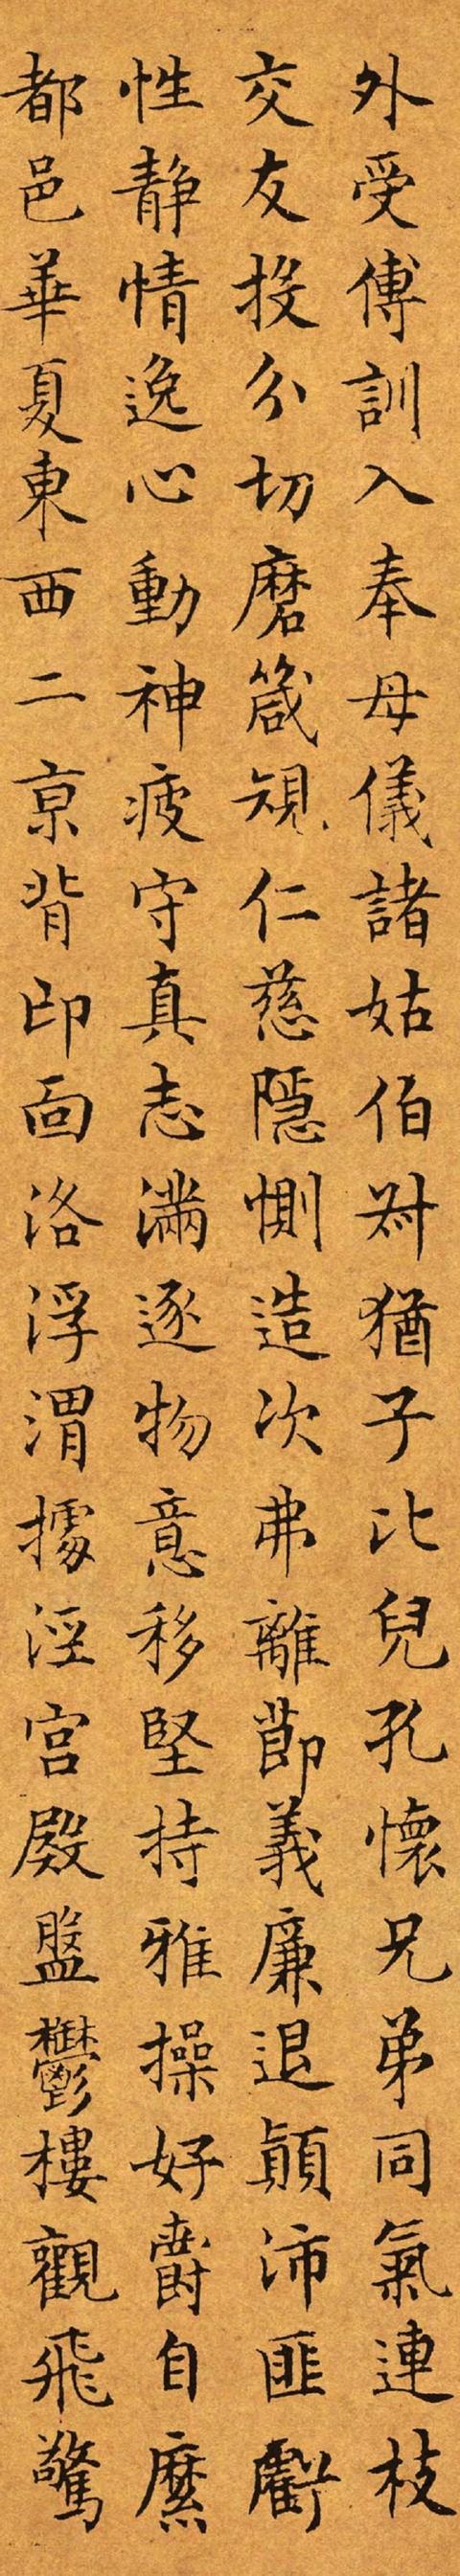 外受傅訓入奉母儀諸姑伯叔猶子比兒孔懷兄弟同氣連枝
交友投分切磨箴規仁慈隱惻造次弗離節義廉退顛沛匪虧
性靜情逸心動神疲守真志滿逐物意移堅持雅操好爵自縻
都邑華夏東西二京背邙面洛浮渭據涇宮殿盤鬱樓觀飛驚